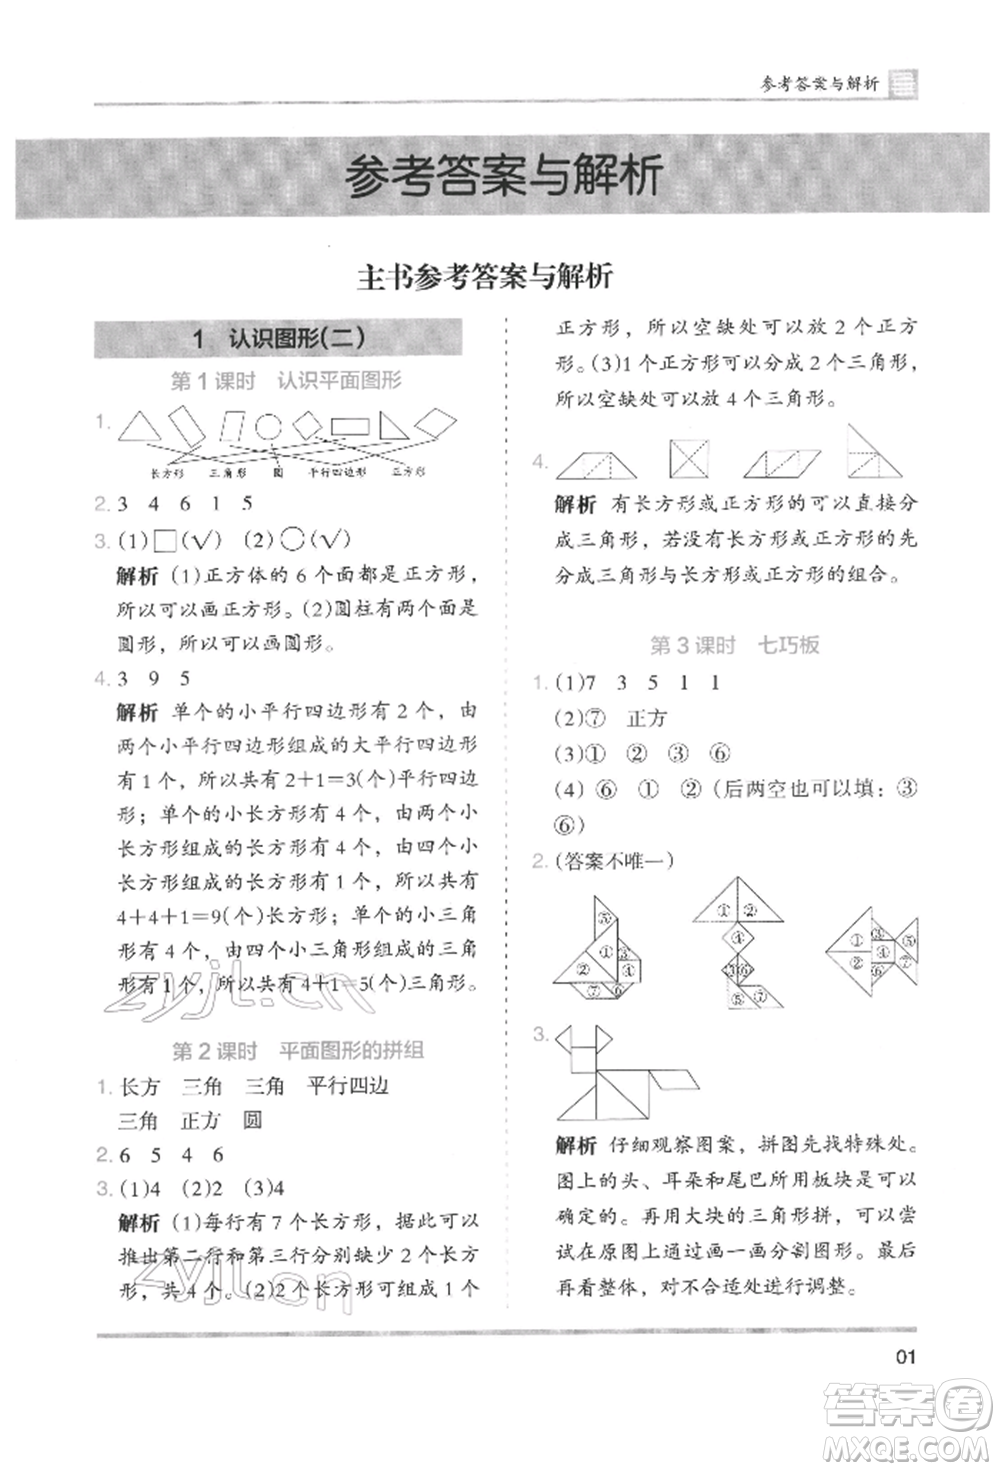 参考答案与解析
参考答案与解析
主书参考答案与解析
1 认识图形(二)
第1课时 认识平面图形
1.
长方形 三角形 圆 平行四边形 正方形
2. 3 4 6 1 5
3. (1)□(√) (2)○(√)
解析 (1)正方体的6个面都是正方形,
所以可以画正方形。(2)圆柱有两个面是
圆形,所以可以画圆形。
4. 3 9 5
解析 单个的小平行四边形有2个,由
两个小平行四边形组成的大平行四边形
有1个,所以共有2+1=3(个)平行四边
形;单个的小长方形有4个,由两个小长
方形组成的长方形有4个,由四个小长
方形组成的长方形有1个,所以共有
4+4+1=9(个)长方形;单个的小三角
形有4个,由四个小三角形组成的三角形
有1个,所以共有4+1=5(个)三角形。
zyjl.cn
第2课时 平面图形的拼组
1. 长方 三角 三角 平行四边
三角 正方 圆
2. 6 5 4 6
3. (1)4 (2)2 (3)4
解析 (1)每行有7个长方形,据此可以
推出第二行和第三行分别缺少2个长方
形,共4个。(2)2个长方形可以拼成1个
zyjl.cn
正方形,所以空缺处可以放2个正方
形。(3)1个正方形可以分成2个三角形,
所以空缺处可以放4个三角形。
4.
解析 有长方形或正方形的可以直接分
成三角形,若没有长方形或正方形的先
分成三角形与长方形或正方形的组合。
第3课时 七巧板
1. (1)7 3 5 1 1
(2)⑦ 正方
(3)① ② ③ ⑥
(4)⑥ ① ②(后两空也可以填:③
⑥)
2. (答案不唯一)
⑤ ① ② ③ ④ ⑥ ⑦
① ② ④ ③ ⑥ ⑤ ⑦
① ② ③ ④ ⑥ ⑤ ⑦
3.
解析 仔细观察图案,拼图先找特殊处。
图上的头、耳朵和尾巴所用板块是可以
确定的。再用大块的三角形拼,可以尝
试在原图上画一画分割图形。最后
再看整体,对不合适处进行调整。
01
答案卷
MXQE.COM